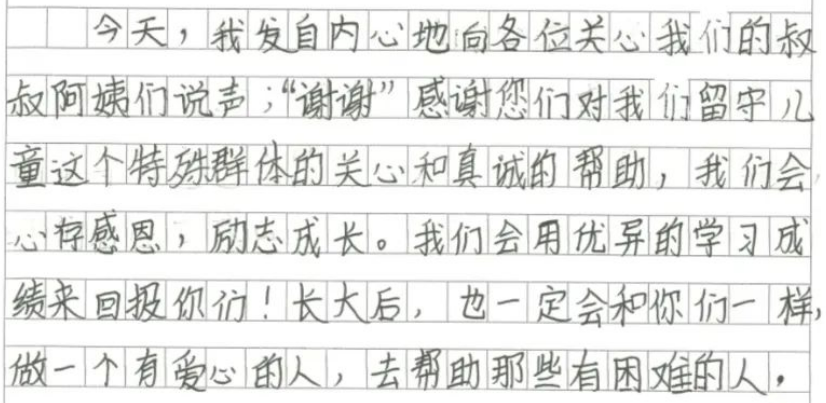 今天，我发自内心地向各位关心我们的叔
叔阿姨们说声；“谢谢”感谢您们对我们留守儿
童这个特殊群体的关心和真诚的帮助，我们会
心存感恩，励志成长。我们会用优异的学习成
绩来回报你们！长大后，也一定会和你们一样，
做一个有爱心的人，去帮助那些有困难的人。